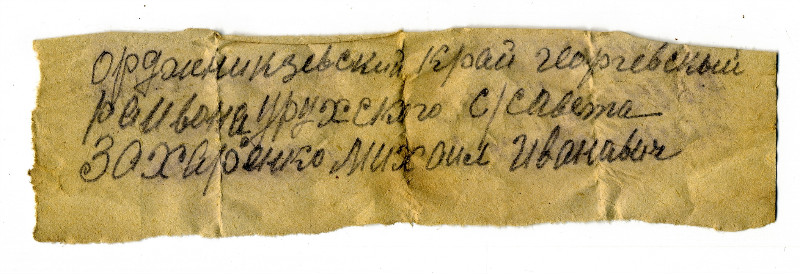 орджиникзевский край георгевский
раивона урухского с/савета
Захаренко Михаил Иванавич